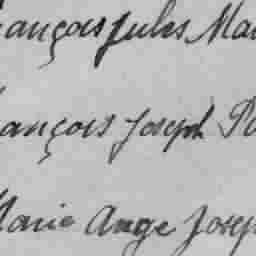 ançois Jules Ma
ançois Joseph P
arie Ange Josep